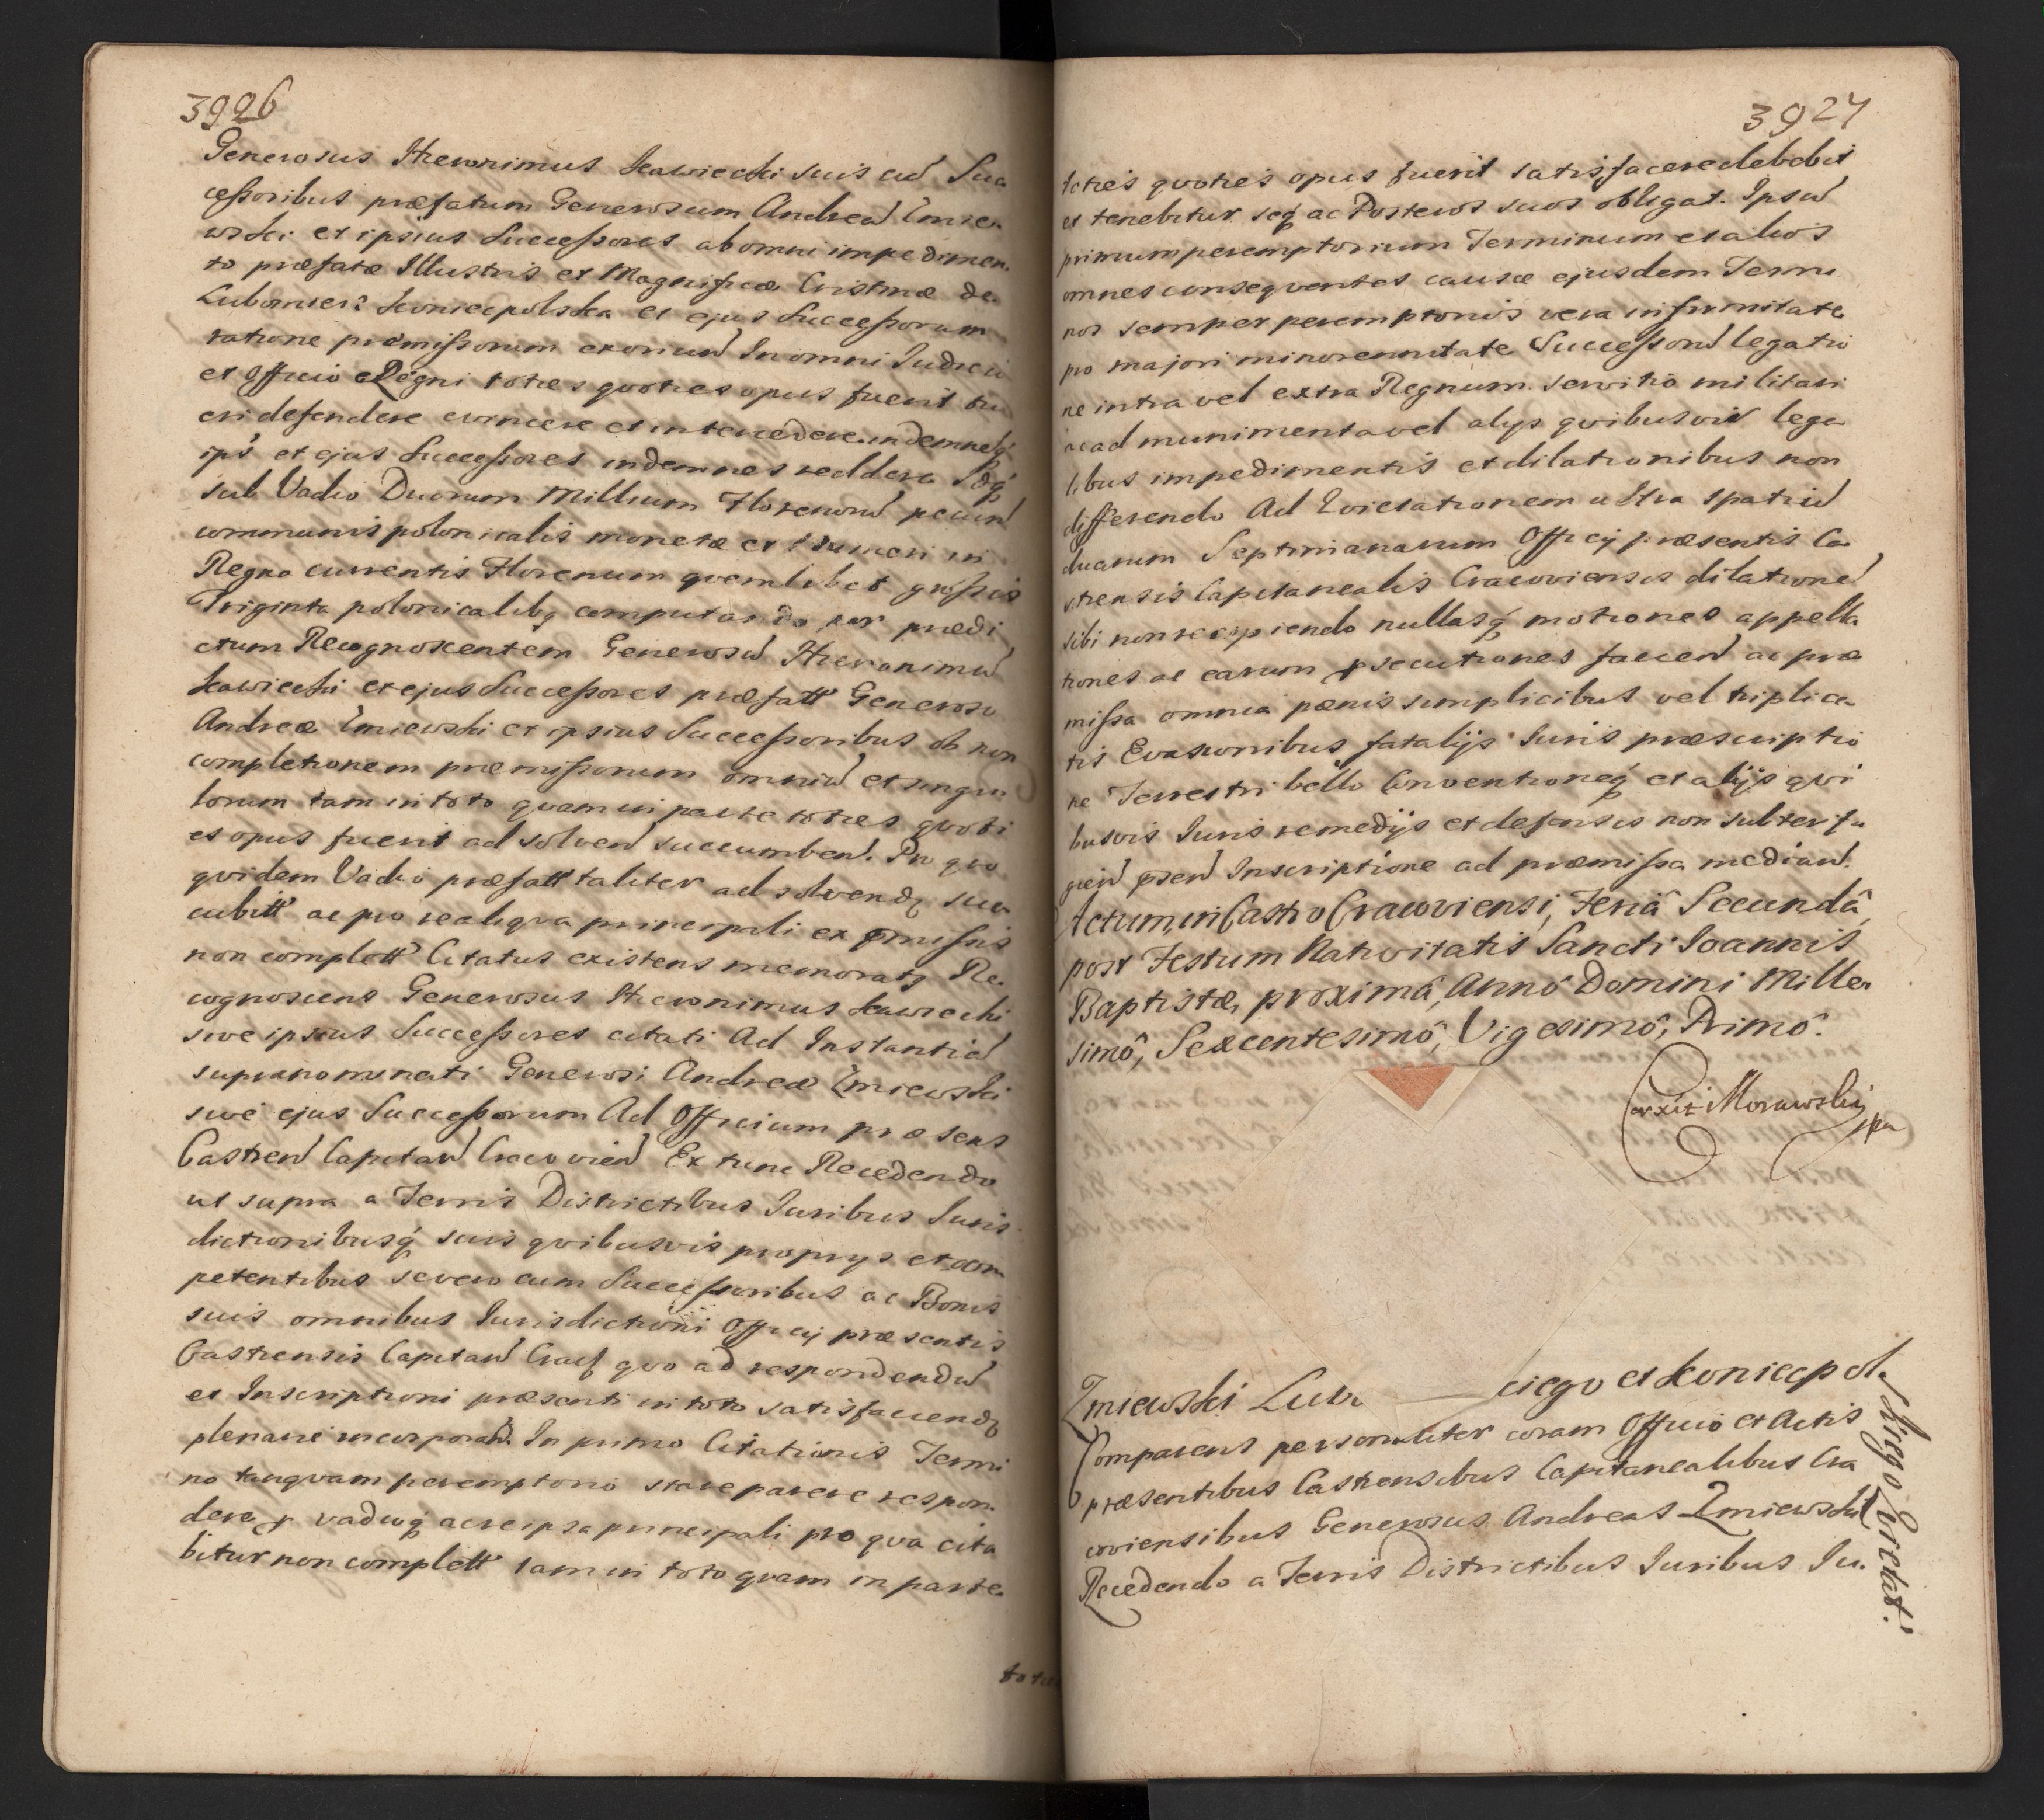 3926
Generosus Hieronimus Kawiecki suis cum Suc
cessoribus præfatum Generosum Andream Zmie-
wski et ipsius Successores ab omni impedimen-
to præfatæ Illustris et Magnificæ Cristinæ de
Lubomierz Koniecpolska et ejus Successorum
ratione præmissorum exorien In omni Judicio
et Officio Regni toties quoties opus fuerit tu
eri defendere evincere et intercedere indemneq
ips et ejus Successores indemnes reddere Seq
sub Vadio Duorum Millium Florenorum pecun
communis polonicalis monetæ et numeri in
Regno currentis Florenum quemlibet grossis
Triginta polonicalibq computando per prædi
ctum Recognoscentem Generosum Hieronimum
Kawiecki et ejus Successores præfatt Generoso
Andreæ Zmiewski et ipsius Successoribus ob non
completionem præmissorum omnium et singu
lorum tam in toto quam in parte toties quoti
es opus fuerit ad solven succumben. Pro quo
quidem Vadio præfatt taliter ad solvendq suc
cubitt ac pro re aliqua principali ex pmissis
non complett Citatus existens memoratq Re-
cognoscens Generosus Hieronimus Kawiecki
sive ipsius Successores citati Ad Instantiam
supranominati Generosi Andreæ Zmiewski
sive ejus Successorum Ad Officium præsens
Castren Capitan Cracovien Ex tunc Recedendo
ut supra a Terris Districtibus Juribus Juris
dictionibusq suis quibusvis proprys et com
petentibus se vero cum Successoribus ac Bonis
suis omnibus Jurisdictioni Officij præsentis
Castrensis Capitan Cracf quo ad respondendum
et Inscriptioni præsenti in toto satisfaciendq
plenarie incorporan. In primo Citationis Termi
no tanquam peremptorio stare parere respon-
dere p vadioq ac re ipsa principali pro qua cita
bitur non complett tam in toto quam in parte
toties
3927
toties quoties opus fuerit satisfacere debebit
et tenebitur seq ac Posteros suos obligat. Ipsum
primum peremptorium Terminum et alios
omnes consequentes causæ ejusdem Termi
nos semper peremptorios vera infirmitate
pro majori minorennitate Successorum legatio
ne intra vel extra Regnum servitio militari
ac ad munimenta vel alys quibusvis lega
libus impedimentis et dilationibus non
differendo Ad Evictationem ultra spatium
duarum Septimanarum Officij præsentis Ca
strensis Capitanealis Cracoviensis dilationem
sibi non recipiendo nullasq motiones appella
tiones ac earum psecutiones facien ac præ
missa omnia pænis simplicibus vel triplica
tis Evasionibus fatalijs Juris præscriptio
ne Terrestri bello Conventioneq et alijs qui
busvis Juris remedijs et defensis non subterfu
gien psen Inscriptione ad præmissa median.
Actum in Castro Cracoviensi, Feriâ Secundâ
post Festum Nativitatis Sancti Joannis
Baptistæ, proximâ, Annô Domini Mille-
simô, Sexcentesimô, Vigesimô, Primô.
Corxit Morawski
mpa
Zmiewski Luw ciego et Koniecpol-
skiego Evictat.
Comparens personaliter coram Officio et Actis
præsentibus Castrensibus Capitanealibus Cra
coviensibus Generosus Andreas Zmiewski
Recedendo a Terris Districtibus Juribus Ju-